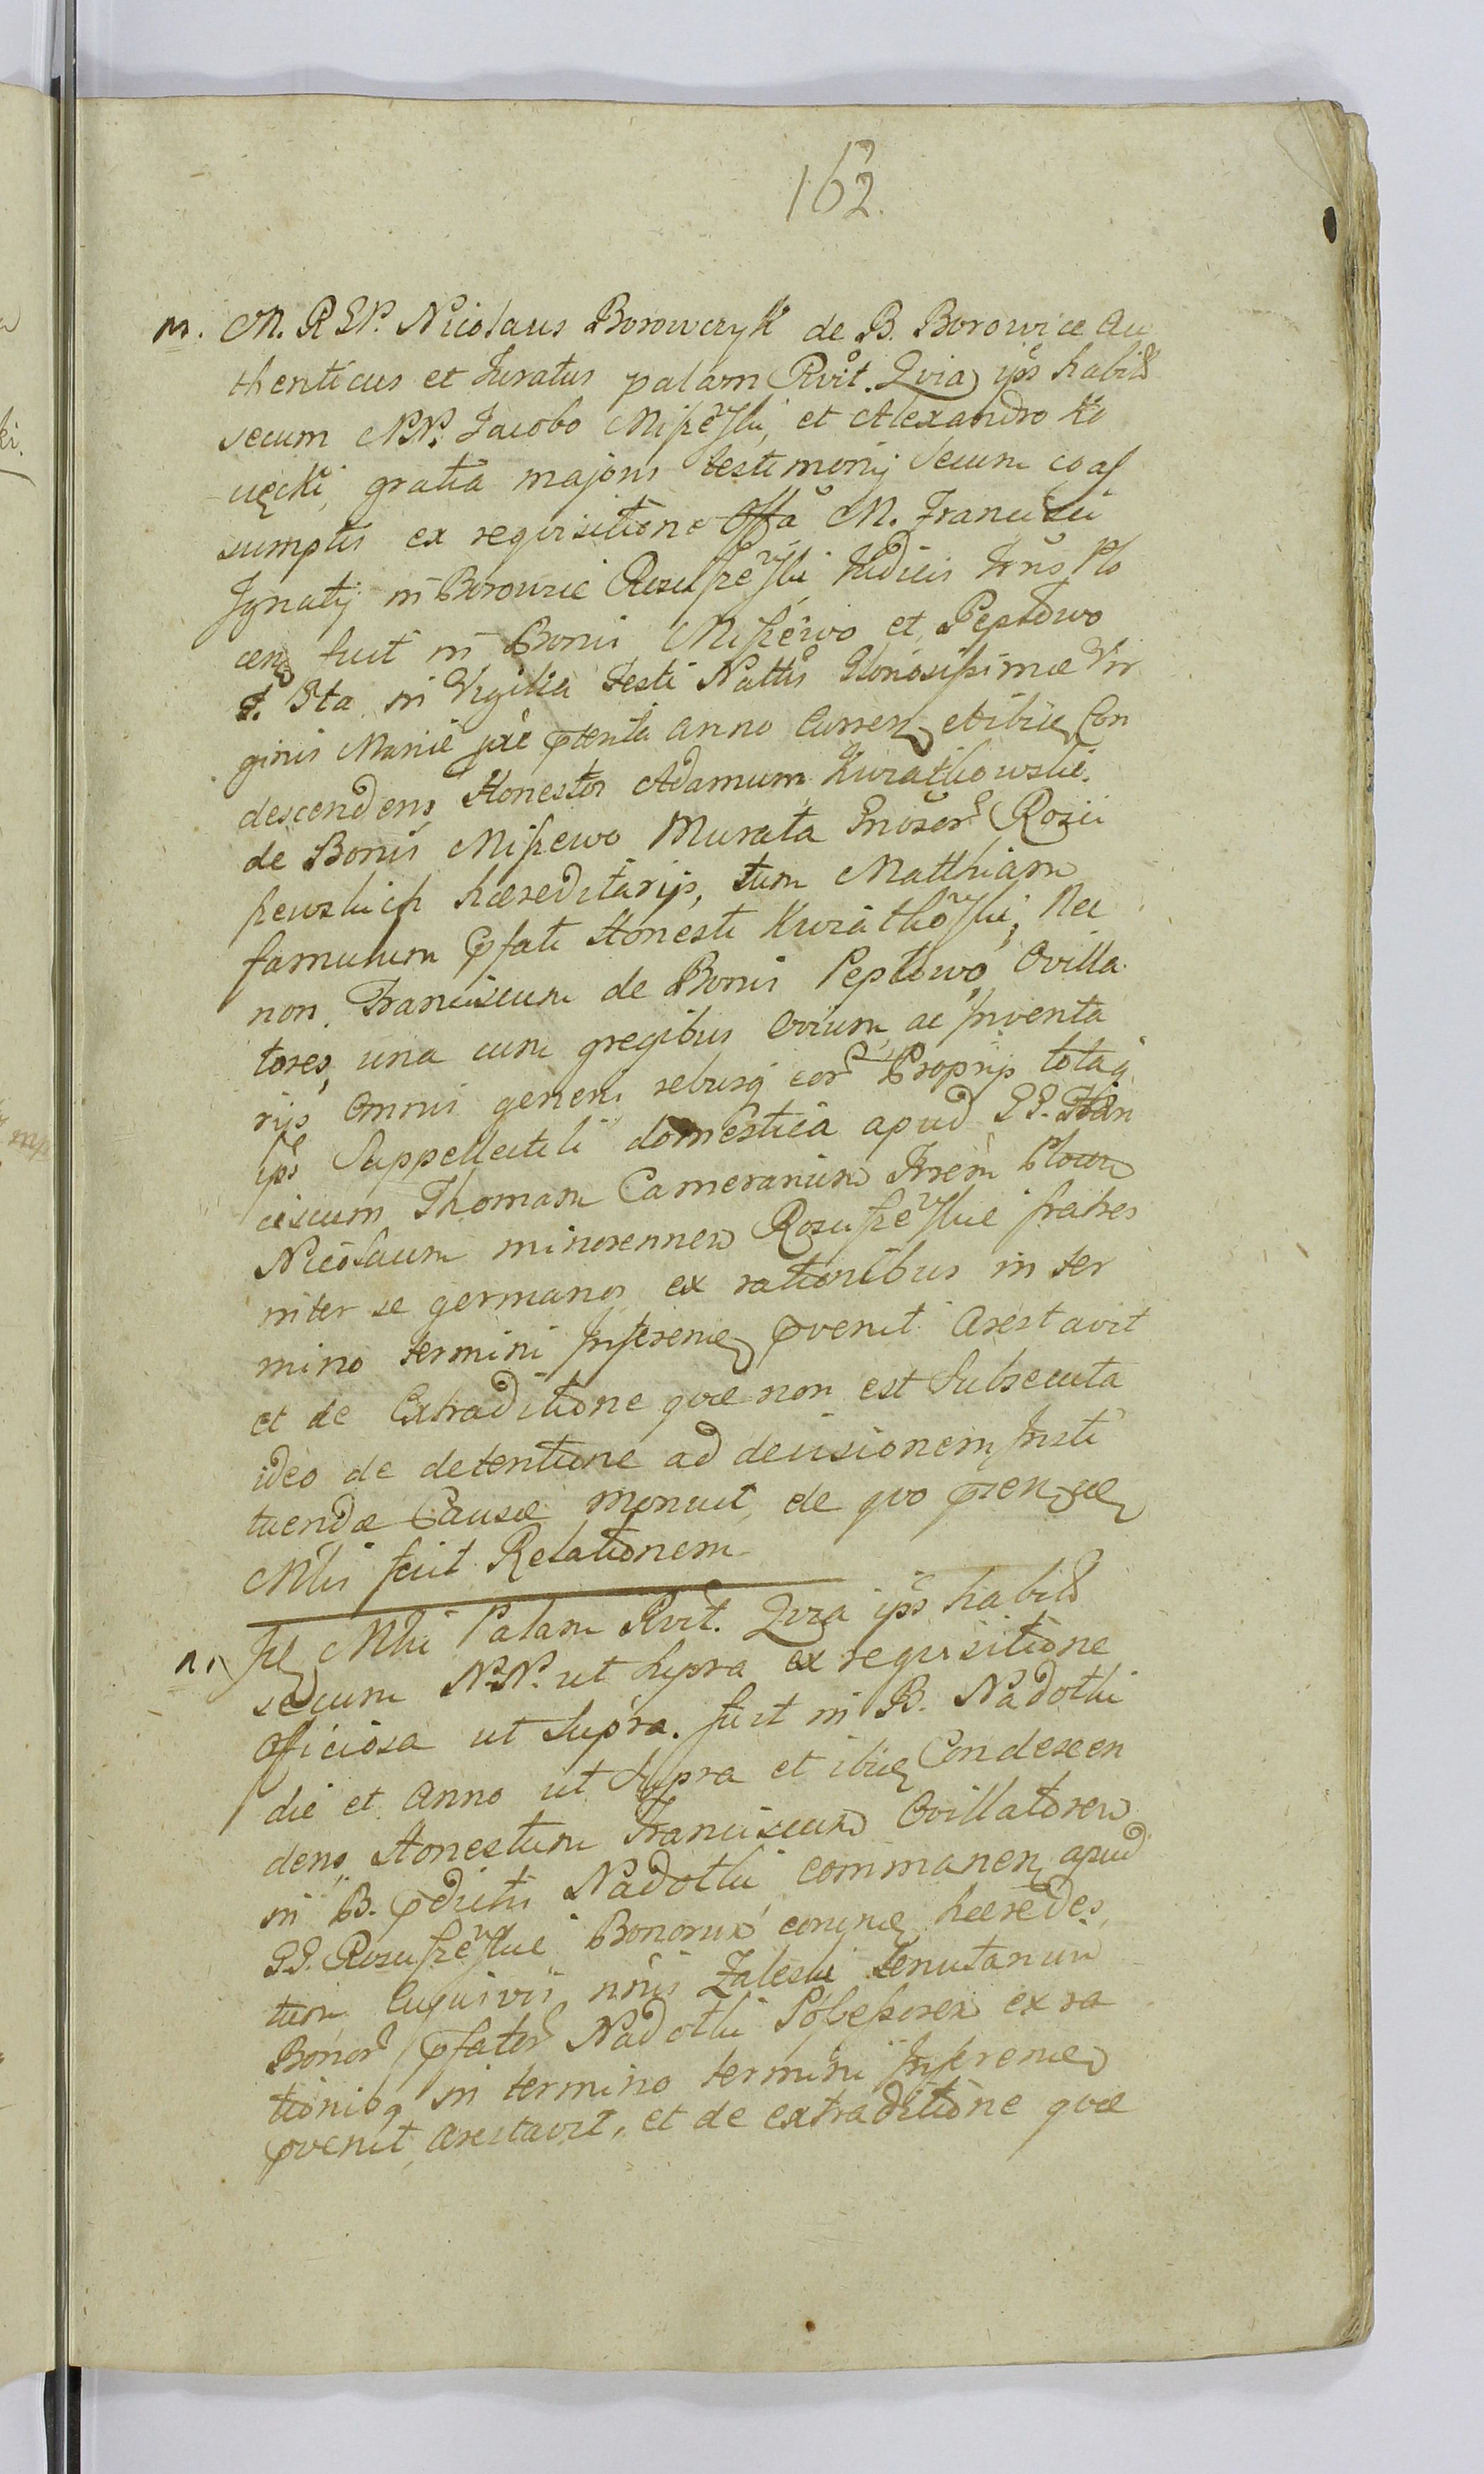 162.
m. M. R SP. Nicolaus Borowczyk de B. Borowice Au
thenticus et Juratus palam Rvit. Qvia ips habils
secum NN. Jacobo Miszewski, et Alexandro Ko
cięcki, gratia majoris testimonij Secum coas
sumptis ex reqvisitione Offa M. Francisci
Ignatij in Borowice Rosciszewski Judicis Trrs Plo
cen fuit in Bonis Miszewo et Peptowo
F. 5ta in Vigilia Festi Nattis Gloriosissimæ Vir
ginis Mariæ pxe pterita anno Curren et ibiq Con
descendens Honestos Adamum Kwiatkowski
de Bonis Miszewo Murata Gnosor Rosci
szewskich hæreditarijs, tum Matthiam
famulum pfati Honesti Kwiatkowski, Nec
non Franciscum de Bonis Peptowo, Ovilla
tores, una cum gregibus Ovium, ac Inventa
rijs omnis generis rebusq eor Proprijs totaq
ips Suppellectili domestica apud GG. Fran
ciscum Thomam Camerarium Trrem Plocen
Nicolaum minorennem Rosciszewskie fratres
inter se germanos ex rationibus in ter
mino termini Inferen pvenit arestavit
et de Extraditione qvæ non est Subsecuta
ideo de detentione ad decisionem Insti
tuendæ Causæ monuit, de qvo pren
Mlis fecit Relationem
n. Mlri Palam Rvit. Qvia ips habils
secum NN. ut Supra ex reqvisitione
Officiosa ut Supra. fuit in B. Nadolki
die et Anno ut Supra et ibiq Condescen
dens Honestum Franciscum Ovillatorem
in B. pdictis Nadolki commanen apud
GG. Rosciszewskie Bonorum hæredes,
tum Cujusvis nnis Zaleski tenutarium
Bonor pfator Nadolki Possessorem ex ra
tionibq in termino termini Inferen
pvenit arestavit, et de extraditione qvæ